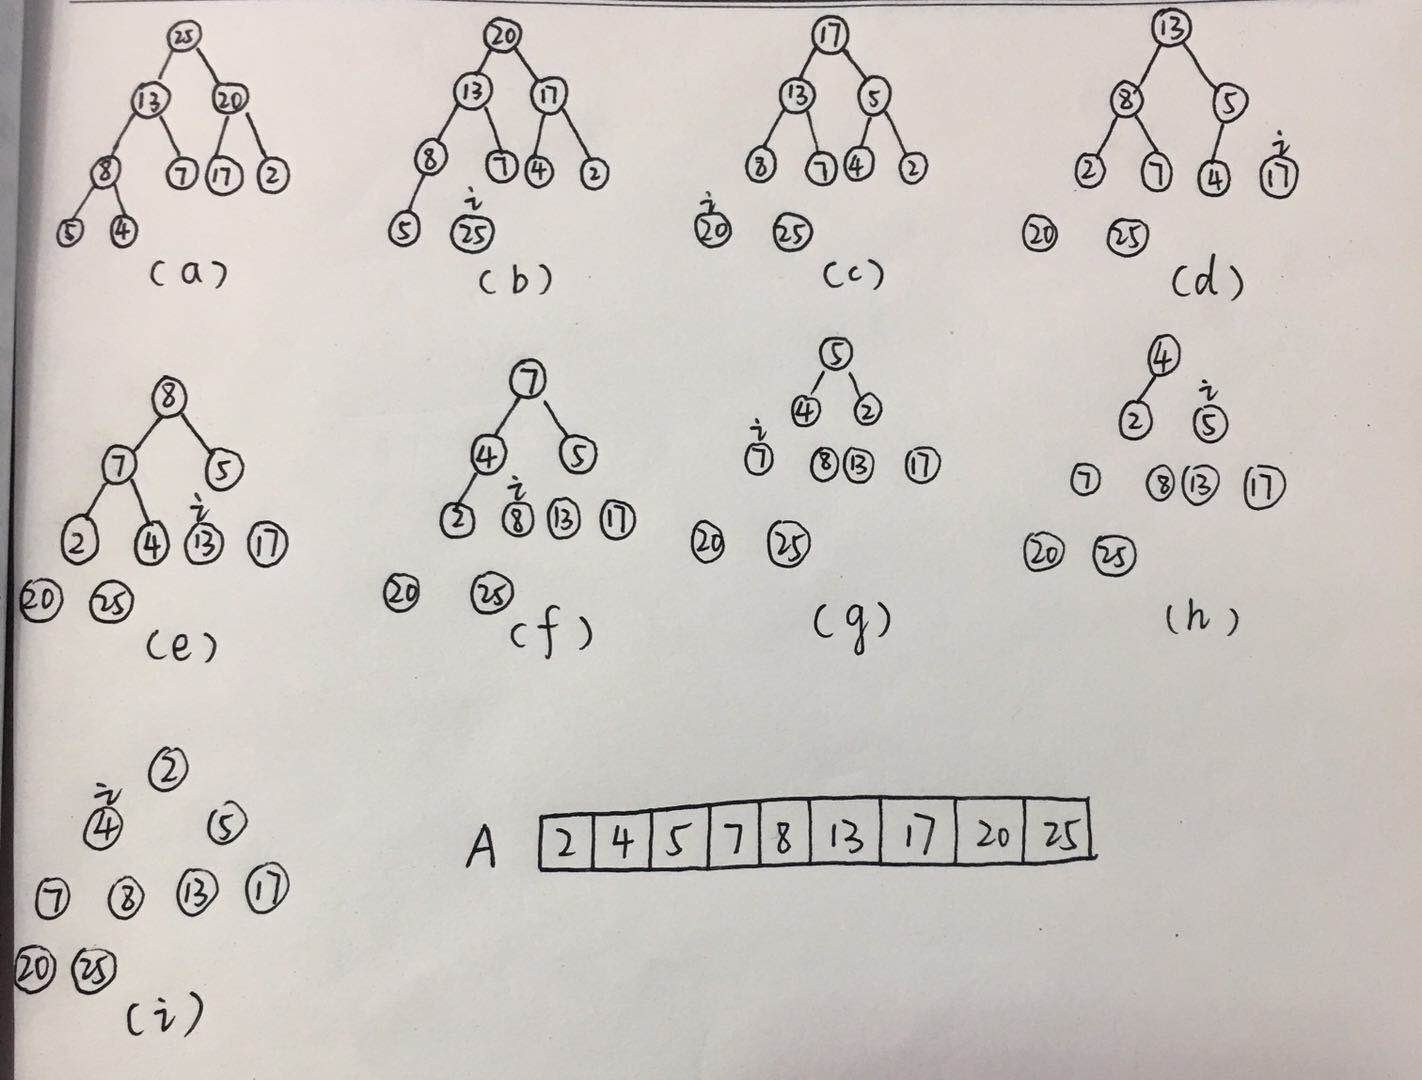 25
13 20
8 7 17 2
5 4
(a)
20
13 17
8 7 4 2
i
5 25
(b)
17
13 5
8 7 4 2
i
20 25
(c)
13
8 5
i
2 7 4 17
20 25
(d)
8
7 5
i
2 4 13 17
20 25
(e)
7
4 5
i
2 8 13 17
20 25
(f)
5
4 2
i
7 8 13 17
20 25
(g)
4
i
2 5
7 8 13 17
20 25
(h)
2
i
4 5
7 8 13 17
20 25
(i)
A 2 4 5 7 8 13 17 20 25